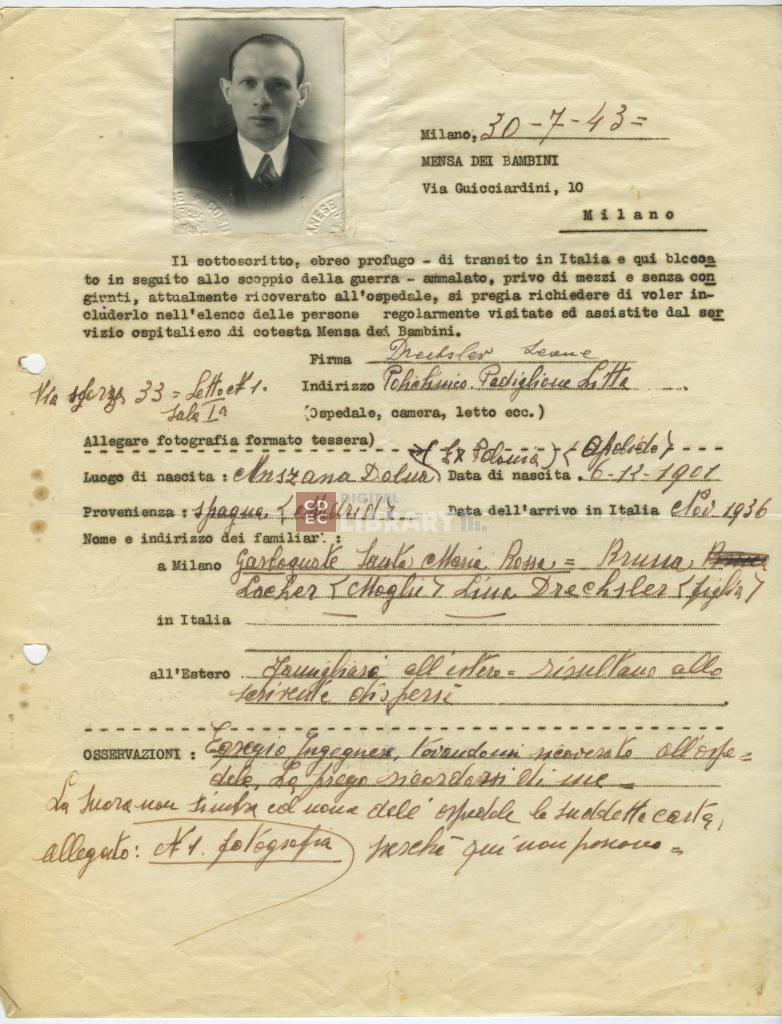 Milano, 30-7-43=
MENSA DEI BAMBINI
Via Guicciardini, 10
Milano
Il sottoscritto, ebreo profugo - di transito in Italia e qui blocca
to in seguito allo scoppio della guerra - ammalato, privo di mezzi e senza con
giunti, attualmente ricoverato all'ospedale, si pregia richiedere di voler in-
cluderlo nell'elenco delle persone regolarmente visitate ed assistite dal ser
vizio ospitaliero di cotesta Mensa dei Bambini.
Firma Drechsler Leone
Indirizzo Policlinico. Padiglione Litta
Via Sforza 33 = Letto N 1.
Sala Iª
(Ospedale, camera, letto ecc.)
Allegare fotografia formato tessera)
(Ex Polonia) (apolide)
Luogo di nascita : Mszana Dolna Data di nascita . 6-12-1901
Provenienza : Spagna (Madrid) Data dell'arrivo in Italia Nov 1936
Nome e indirizzo dei familiari :
a Milano Garbagnate Santa Maria Rossa = Bruna
Locher (Moglie) Lina Drechsler (figlia)
in Italia
all'Estero Famigliari all'estero = risultano allo
scrivente dispersi
OSSERVAZIONI : Egregio Ingegnere, trovandomi ricoverato all'ospe=
dale, La prego ricordarsi di me
La Suora non timbra ed nome dell' ospedale la suddetta carta,
allegato: N 1. fotografia perchè qui non possono =
CDEC
DIGITAL
LIBRARY